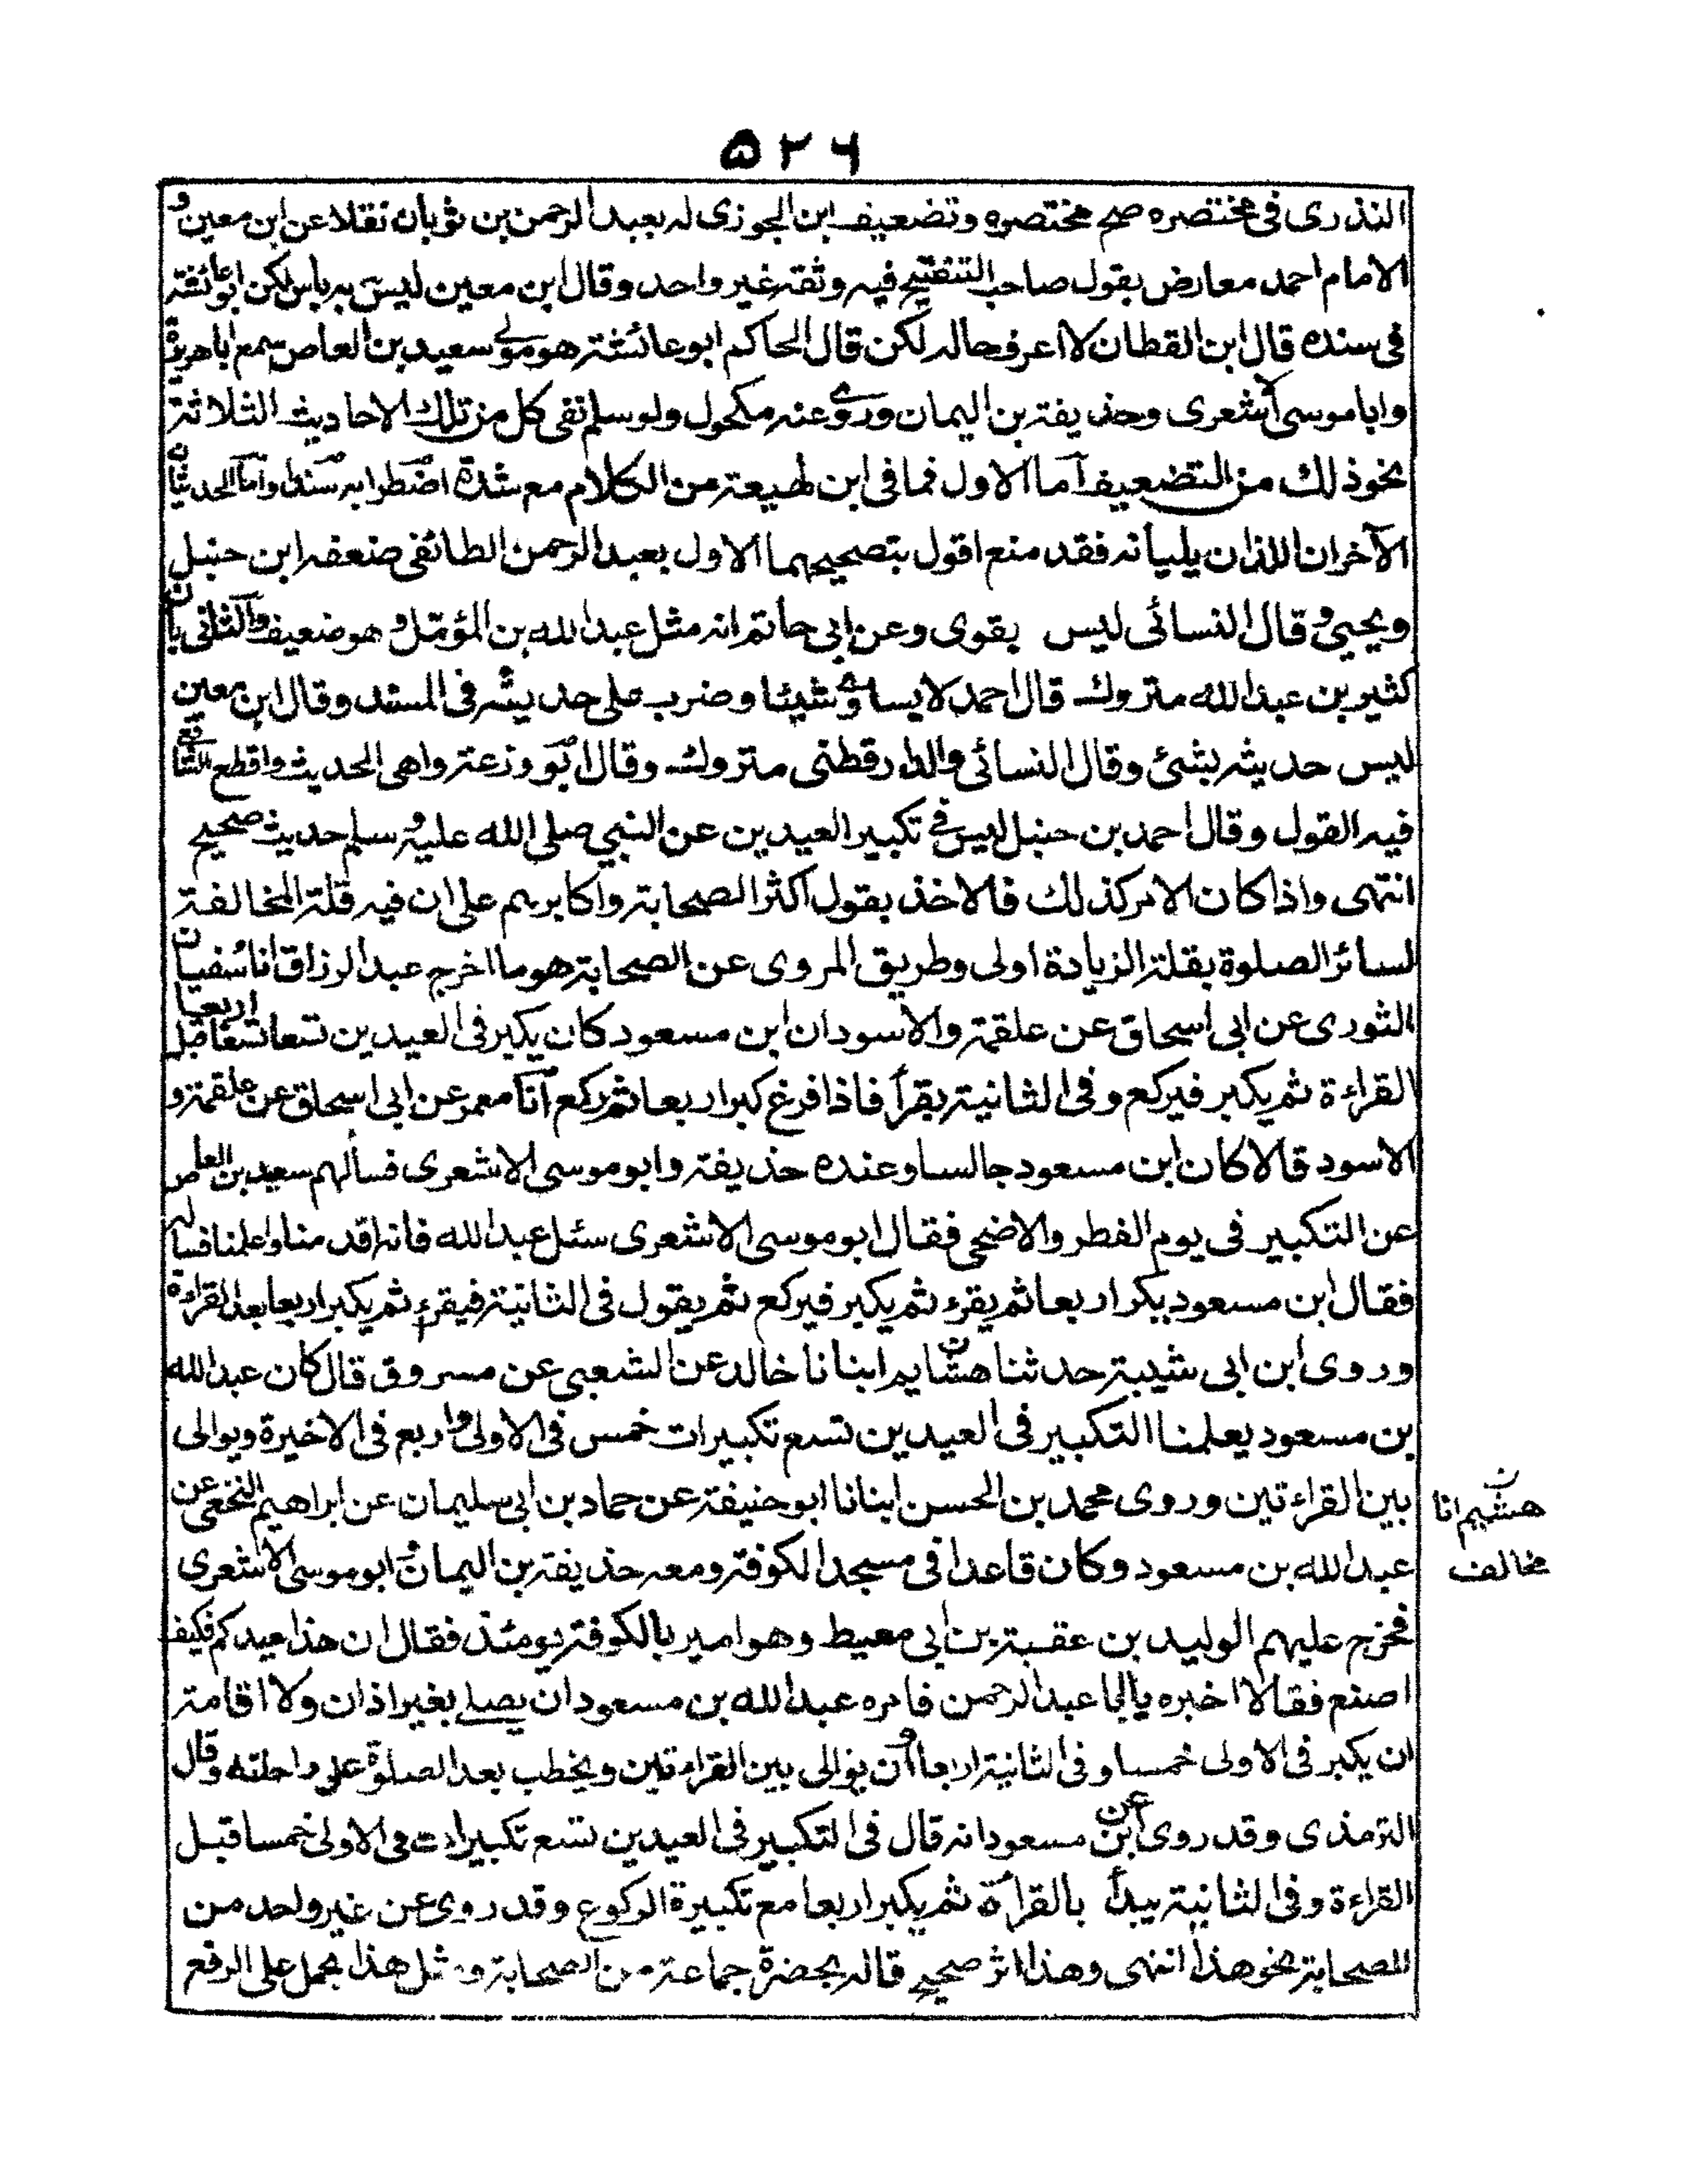 ٥٢٦
النذرى فى مختصره صح مختصره وتضعيف ابن الجوزى له بعبد الرحمن بن ثوبان نقلا عن ابن معين و
الامام احمد معارض بقول صاحب التنقيح فيه وثقه غير واحد وقال ابن معين ليس به باس لكن ابو عائشة
فى سنده قال ابن القطان لا اعرف حاله لكن قال الحاكم ابو عائشة هو مولى سعيد بن العاص سمع ابا هريرة
وابا موسى الاشعرى وحذيفة بن اليمان وروى عنه مكحول ولو سلم نفى كل من تلك الاحاديث الثلاثة
نحو ذلك من التضعيف اما الاول فما فى ابن لهيعة من الكلام مع شدة اضطرابه سندا واما الحديثان
الآخران اللذان يليانه فقد منع اقول بتصحيحهما الاول بعبد الرحمن الطائفى ضعفه ابن حنبل
ويحيى و قال النسائى ليس بقوى وعن ابى حاتم انه مثل عبد الله بن المؤمل و هو ضعيف والثانى بان
كثير بن عبد الله متروك قال احمد لا يساوى شيئا وضرب على حديثه فى المسند وقال ابن معين
ليس حديثه بشئ وقال النسائى والدارقطنى متروك وقال ابو زرعة واهى الحديث واقطع الشافعى
فيه القول وقال احمد بن حنبل ليس فى تكبير العيدين عن النبي صلى الله عليه و سلم حديث صحيح
انتهى واذا كان الامر كذلك فالاخذ بقول اكثر الصحابة واكابرهم على ان فيه قلة المخالفة
لسائر الصلوة بقلة الزيادة اولى وطريق المروى عن الصحابة هو ما اخرج عبد الرزاق انا سفيان
الثورى عن ابى اسحاق عن علقمة والاسود ان ابن مسعود كان يكبر فى العيدين تسعا تسعا اربعا قبل
القراءة ثم يكبر فيركع وفى الثانية يقرأ فاذا فرغ كبر اربعا ثم ركع انا معمر عن ابى اسحاق عن علقمة و
الاسود قالا كان ابن مسعود جالسا وعنده حذيفة وابو موسى الاشعرى فسألهم سعيد بن العاص
عن التكبير فى يوم الفطر والاضحى فقال ابو موسى الاشعرى سئل عبد الله فانه اقدمنا واعلمنا فساله
فقال ابن مسعود يكبر اربعا ثم يقرء ثم يكبر فيركع ثم يقول فى الثانية فيقرء ثم يكبر اربعا بعد القراءة
وروى ابن ابى شيبة حدثنا هشايم انبانا خالد عن الشعبى عن مسروق قال كان عبد الله
بن مسعود يعلمنا التكبير فى العيدين تسع تكبيرات خمس فى الاولى و اربع فى الاخيرة ويوالى
بين القراءتين وروى محمد بن الحسن انبانا ابو حنيفة عن حماد بن ابى سليمان عن ابراهيم النخعى عن
عبد الله بن مسعود وكان قاعدا فى مسجد الكوفة ومعه حذيفة بن اليمان و ابو موسى الاشعرى
فخرج عليهم الوليد بن عقبة بن ابى معيط وهو امير بالكوفة يومئذ فقال ان هذا عيدكم فكيف
اصنع فقالا اخبره يا ابا عبد الرحمن فامره عبد الله بن مسعود ان يصلى بغير اذان ولا اقامة
ان يكبر فى الاولى خمسا وفى الثانية اربعا و ان يوالى بين القراءتين ويخطب بعد الصلوة على راحلته وقال
الترمذى وقد روى عن ابن مسعود انه قال فى التكبير فى العيدين تسع تكبيرات فى الاولى خمسا قبل
القراءة وفى الثانية يبدأ بالقراءة ثم يكبر اربعا مع تكبيرة الركوع وقد روى عن غير واحد من
الصحابة نحو هذا انتهى وهذا اثر صحيح قاله بحضرة جماعة من الصحابة ومثل هذا يحمل على الرفع
ن
هشيم انا
مخالف